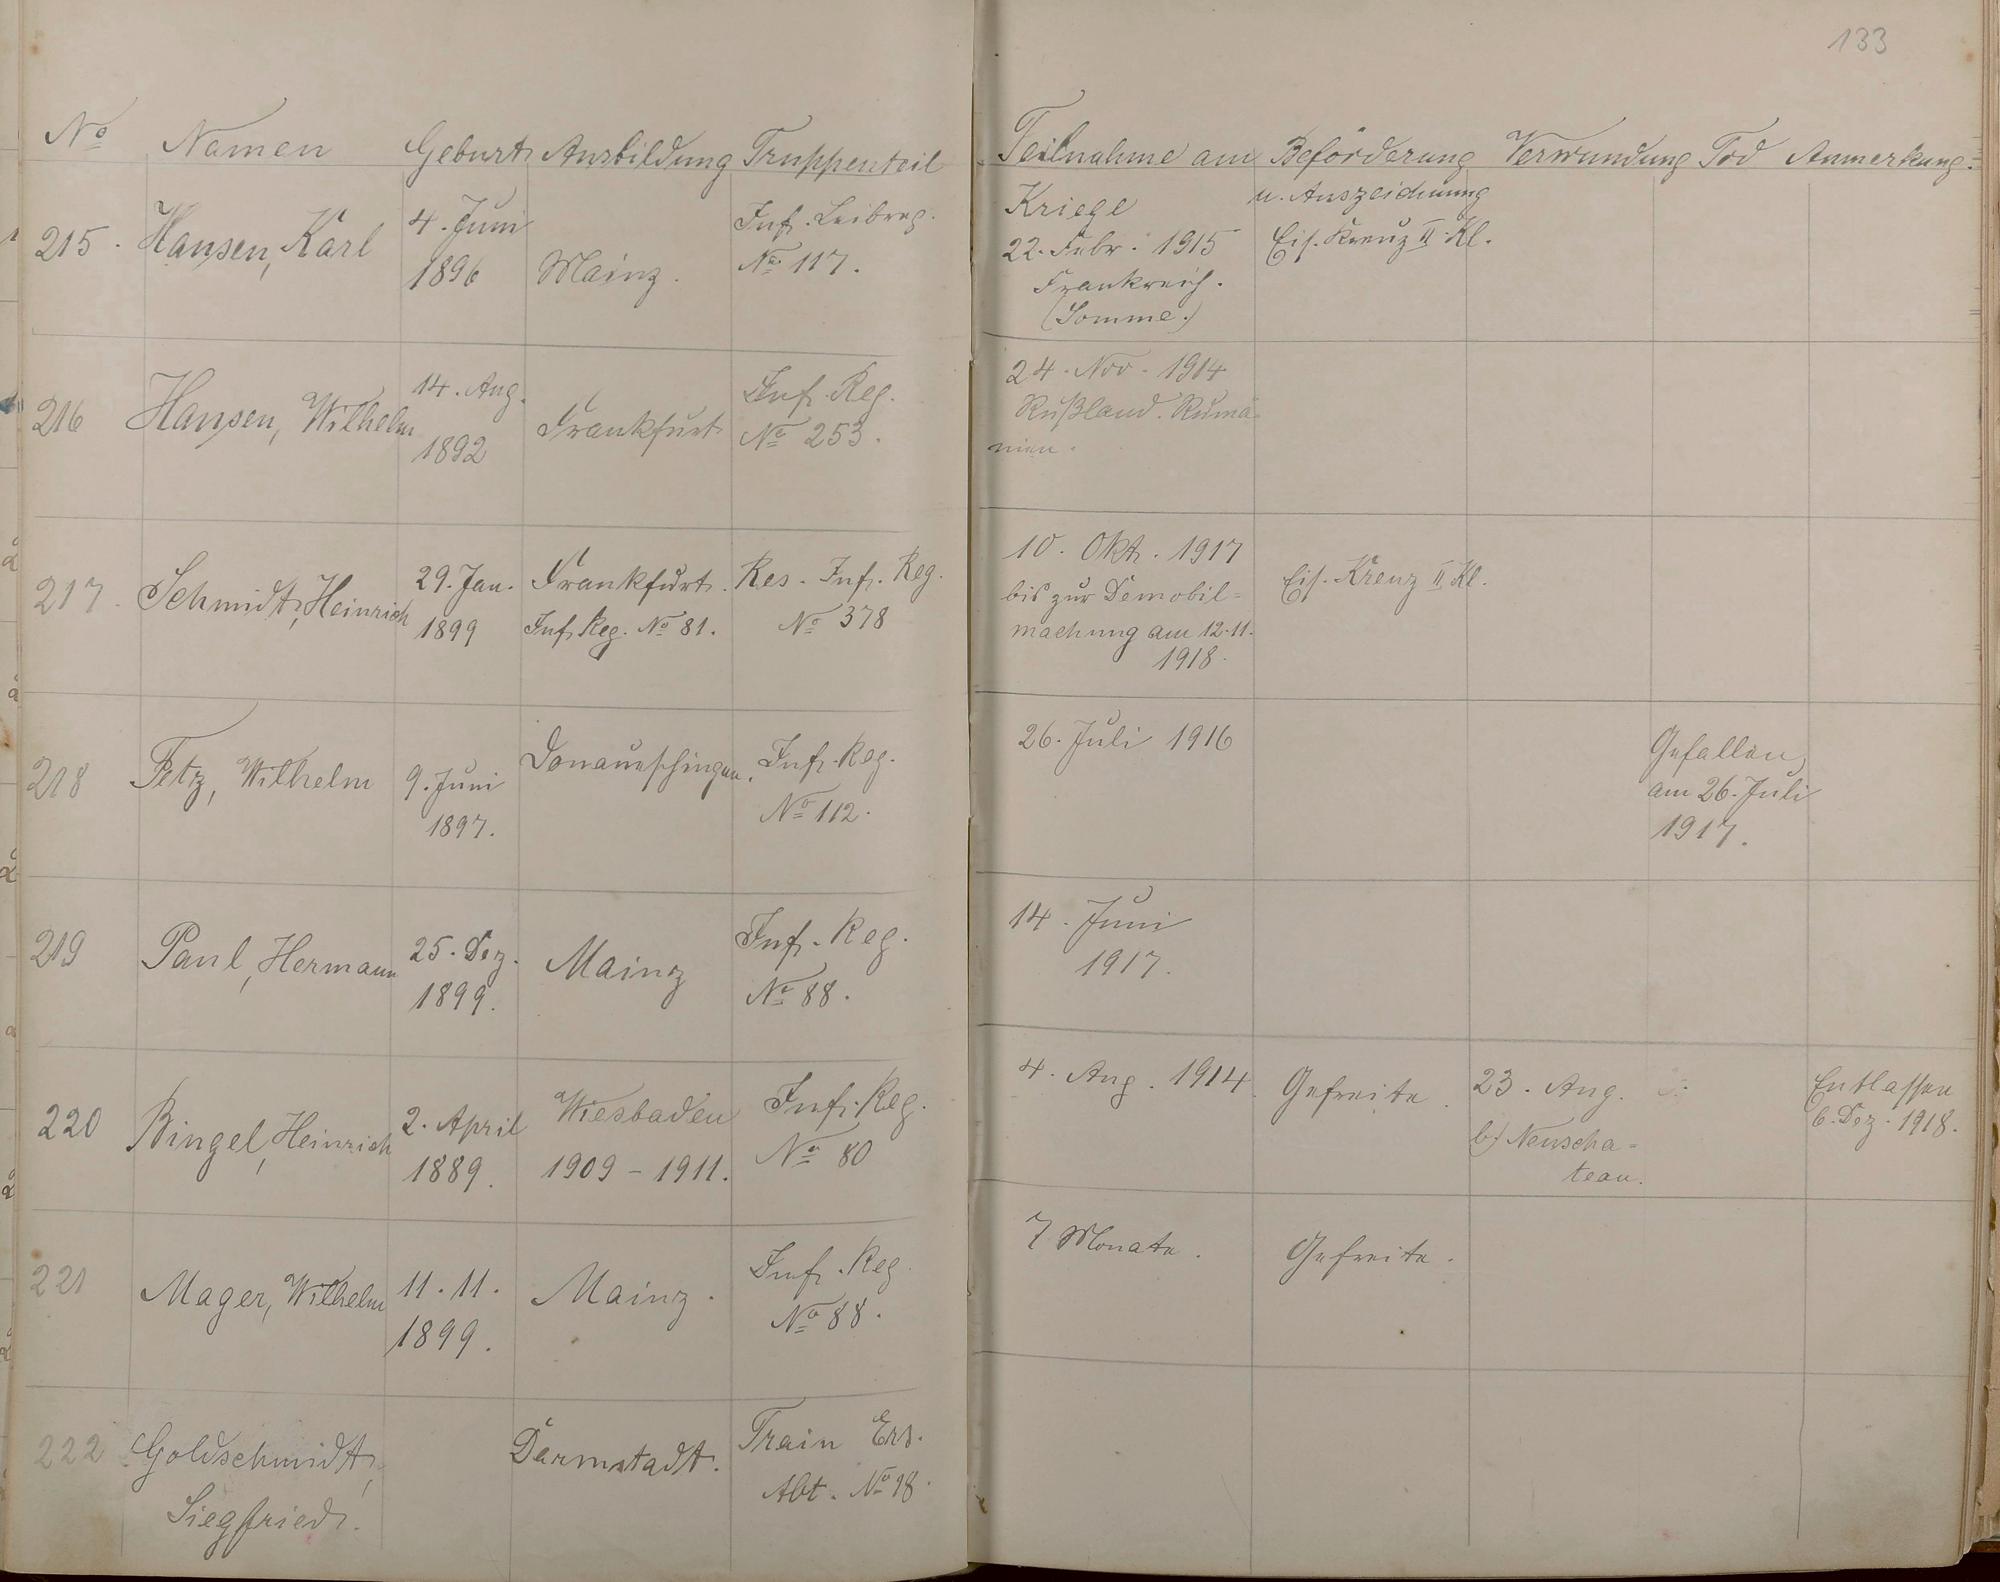 133
No Namen Geburt Ausbildung Truppenteil Teilnahme am Beförderung Verwundung Tod Anmerkung.
Kriege u. Auszeichnung
215. Hansen, Karl
4. Juni
1896
Mainz.
Inf. Leibreg.
No 117.
22. Febr. 1915
Frankreich.
(Somme.)
Eis. Kreuz II. Kl.
216 Hansen, Wilhelm
14. Aug.
1892
Frankfurt
Inf. Reg.
No 253.
24. Nov. 1914
Rußland. Rumä-
nien.
217. Schmidt, Heinrich
29. Jan.
1899
Frankfurt.
Inf. Reg. No 81.
Res. Inf. Reg.
No 378
10. Okt. 1917
bis zur Demobil=
machung am 12.11.
1918.
Eis. Kreuz II Kl.
218 Fetz, Wilhelm
9. Juni
1897.
Donaueschingen.
Inf. Reg.
No 112.
26. Juli 1916
Gefallen,
am 26. Juli
1917.
219 Paul, Hermann
25. Dez.
1899.
Mainz
Inf. Reg.
No 88.
14. Juni
1917.
220 Bingel, Heinrich
2. April
1889.
Wiesbaden
1909 - 1911.
Inf. Reg.
No 80
4. Aug. 1914.
Gefreite.
23. Aug.
b/ Neuscha=
teau.
Entlassen
6. Dez. 1918.
221 Mager, Wilhelm
11. 11.
1899.
Mainz.
Inf. Reg.
No 88.
7 Monate.
Gefreite.
222. Goldschmidt,
Siegfried.
Darmstadt.
Train Ers.
Abt. No 18.